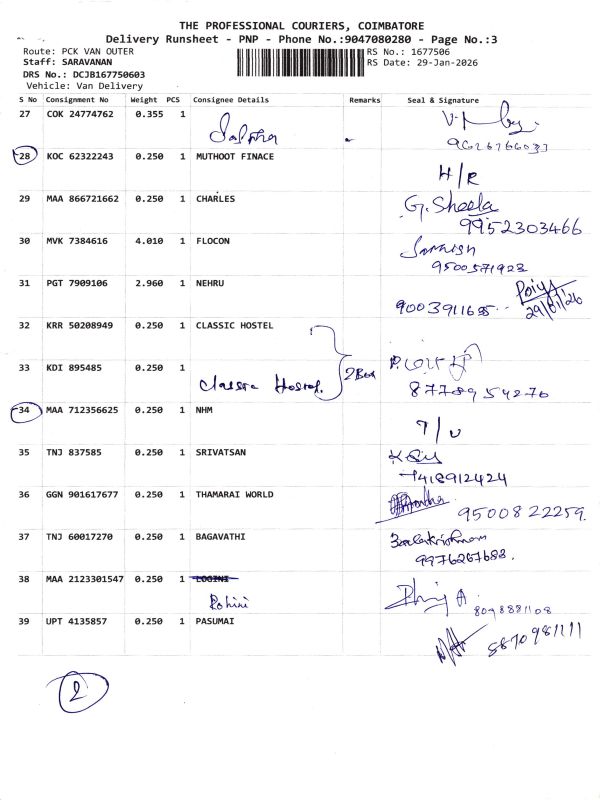 THE PROFESSIONAL COURIERS, COIMBATORE
Delivery Runsheet - PNP - Phone No.:9047080280 - Page No.:3
Route: PCK VAN OUTER
RS No.: 1677506
Staff: SARAVANAN
RS Date: 29-Jan-2026
DRS No.: DCJB167750603
Vehicle: Van Delivery
S No Consignment No Weight PCS Consignee Details Remarks Seal & Signature
27 COK 24774762 0.355 1
28 KOC 62322243 0.250 1 MUTHOOT FINACE
H/R
29 MAA 866721662 0.250 1 CHARLES G. Sheela
9952303466
30 MVK 7384616 4.010 1 FLOCON
9500571928
31 PGT 7909106 2.960 1 NEHRU
29/01/26
32 KRR 50208949 0.250 1 CLASSIC HOSTEL
33 KDI 895485 0.250 1
Classic Hostel. 2 Box 8778954276
34 MAA 712356625 0.250 1 NHM
35 TNJ 837585 0.250 1 SRIVATSAN
7418912424
36 GGN 901617677 0.250 1 THAMARAI WORLD
9500822259.
37 TNJ 60017270 0.250 1 BAGAVATHI Balakrishnan
9976267688.
38 MAA 2123301547 0.250 1 LOGINI
Rohini
8098881108
39 UPT 4135857 0.250 1 PASUMAI
2